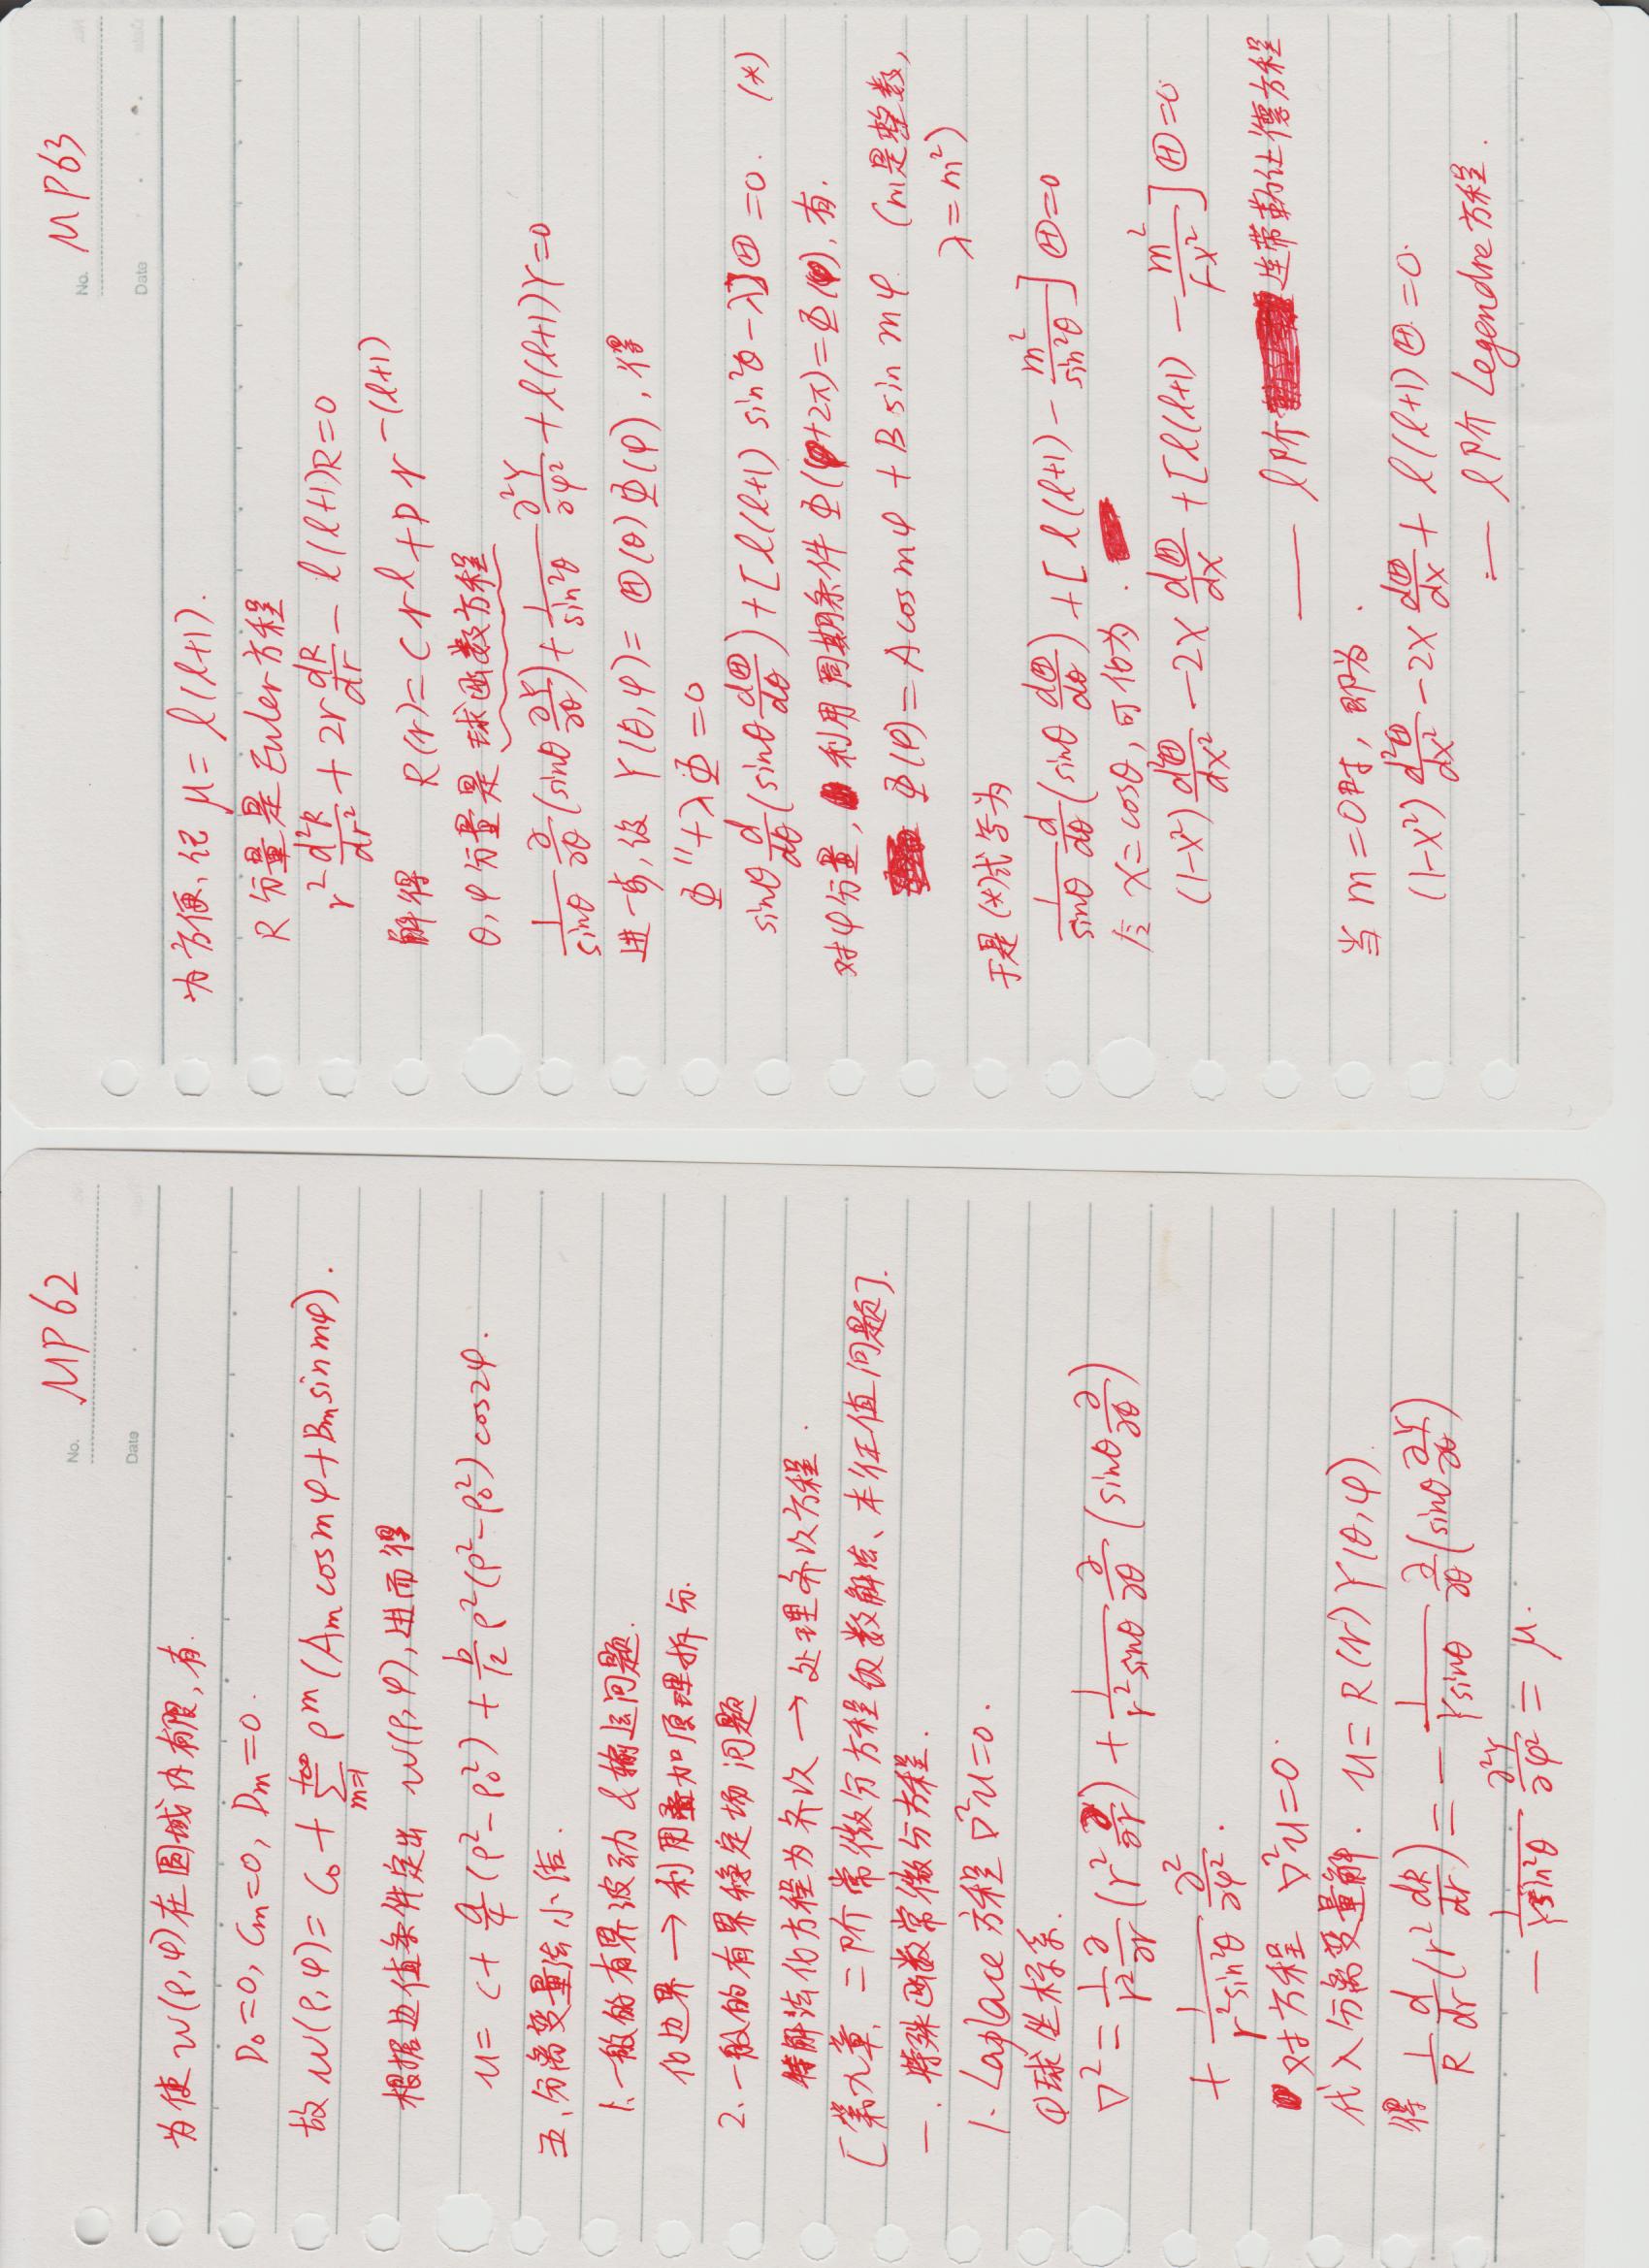 No. MP62
Date
为使 w(ρ,φ)在圆域内有限,有.
D₀=0, Cₘ=0, Dₘ=0.
故 w(ρ,φ)= C₀ + Σ_{m=1}^{+∞} ρ^m (Aₘcosmφ+Bₘsinmφ).
根据边值条件定出 w(ρ,φ),进而得
u= c+ a/4 (ρ²-ρ₀²) + b/12 ρ²(ρ²-ρ₀²) cos2φ.
五、分离变量法小结.
1.一般的有界波动&输运问题.
化边界 → 利用叠加原理拆分.
2.一般的有界稳定场问题
特解法化方程为齐次 → 处理齐次方程.
[第九章. 二阶常微分方程级数解法、本征值问题].
一. 特殊函数常微分方程.
1. Laplace 方程 ∇²u=0.
①球坐标系.
∇² = 1/r² ∂/∂r (r² ∂/∂r) + 1/(r²sinθ) ∂/∂θ (sinθ ∂/∂θ)
+ 1/(r²sin²θ) ∂²/∂φ².
对方程 ∇²u=0.
代入分离变量解. u= R(r) Y(θ,φ).
得 1/R d/dr (r² dR/dr) = - 1/(Ysinθ) ∂/∂θ (sinθ ∂Y/∂θ)
- 1/(Ysin²θ) ∂²Y/∂φ² = μ.
No. MP63
Date
为方便,记 μ= l(l+1).
R 分量是 Euler方程
r² d²R/dr² + 2r dR/dr - l(l+1)R=0
解得 R(r)= C r^l + D r^{-(l+1)}
θ,φ分量是 球函数方程
1/sinθ ∂/∂θ (sinθ ∂Y/∂θ) + 1/sin²θ ∂²Y/∂φ² + l(l+1)Y=0
进一步,设 Y(θ,φ)= Θ(θ)Φ(φ),得
Φ''+λΦ=0
sinθ d/dθ (sinθ dΘ/dθ) + [l(l+1) sin²θ-λ]Θ=0. (*)
对φ分量, 利用周期条件 Φ(φ+2π)=Φ(φ),有.
Φ(φ)= A cos mφ + B sin mφ. (m是整数,
λ=m²)
于是(*)式写为
1/sinθ d/dθ (sinθ dΘ/dθ) + [l(l+1) - m²/sin²θ] Θ=0
令 x=cosθ,可化为.
(1-x²) d²Θ/dx² -2x dΘ/dx + [l(l+1) - m²/(1-x²)] Θ=0
—— l阶 连带勒让德方程
当 m=0时,即为.
(1-x²) d²Θ/dx² -2x dΘ/dx + l(l+1)Θ=0.
—— l阶 Legendre方程.